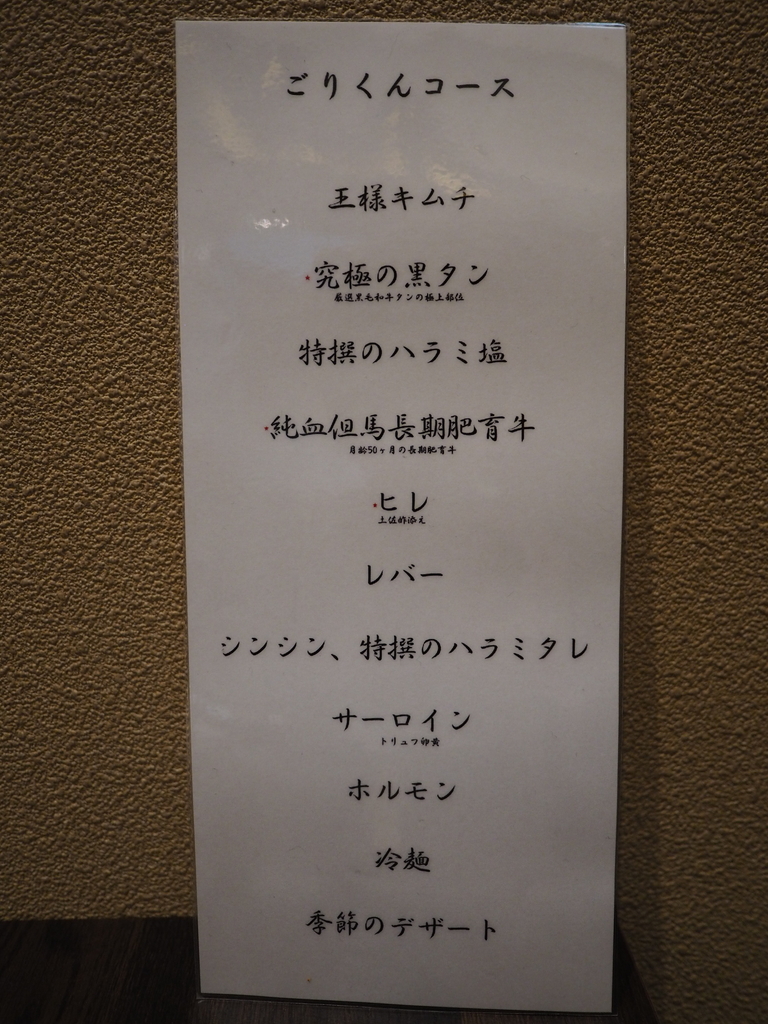 ごりくんコース
王様キムチ
究極の黒タン
厳選黒毛和牛タンの極上部位
特撰のハラミ塩
純血但馬長期肥育牛
月齢50ヶ月の長期肥育牛
ヒレ
土佐酢添え
レバー
シンシン、特撰のハラミタレ
サーロイン
トリュフ卵黄
ホルモン
冷麺
季節のデザート